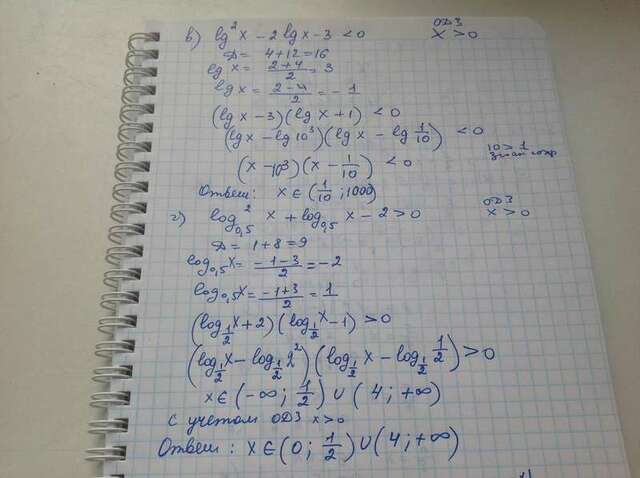 в) lg²x − 2 lg x − 3 < 0 ОДЗ x > 0
Д = 4+12 = 16
lg x = (2+4)/2 = 3
lg x = (2−4)/2 = −1
(lg x − 3)(lg x + 1) < 0
(lg x − lg 10³)(lg x − lg 1/10) < 0
10 > 1 знак сохр
(x − 10³)(x − 1/10) < 0
Ответ: x ∈ (1/10 ; 1000)
г) log²₀,₅ x + log₀,₅ x − 2 > 0 ОДЗ x > 0
Д = 1+8 = 9
log₀,₅ x = (−1−3)/2 = −2
log₀,₅ x = (−1+3)/2 = 1
(log_1/2 x + 2)(log_1/2 x − 1) > 0
(log_1/2 x − log_1/2 2²)(log_1/2 x − log_1/2 1/2) > 0
x ∈ (−∞ ; 1/2) ∪ (4 ; +∞)
с учетом ОДЗ x > 0
Ответ : x ∈ (0 ; 1/2) ∪ (4 ; +∞)